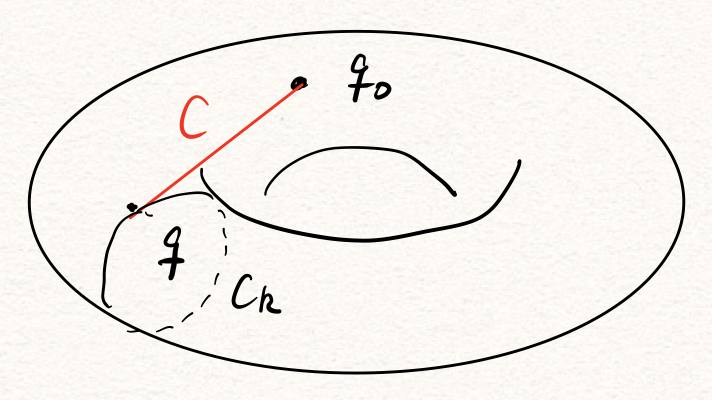 q₀
C
q
Cₖ